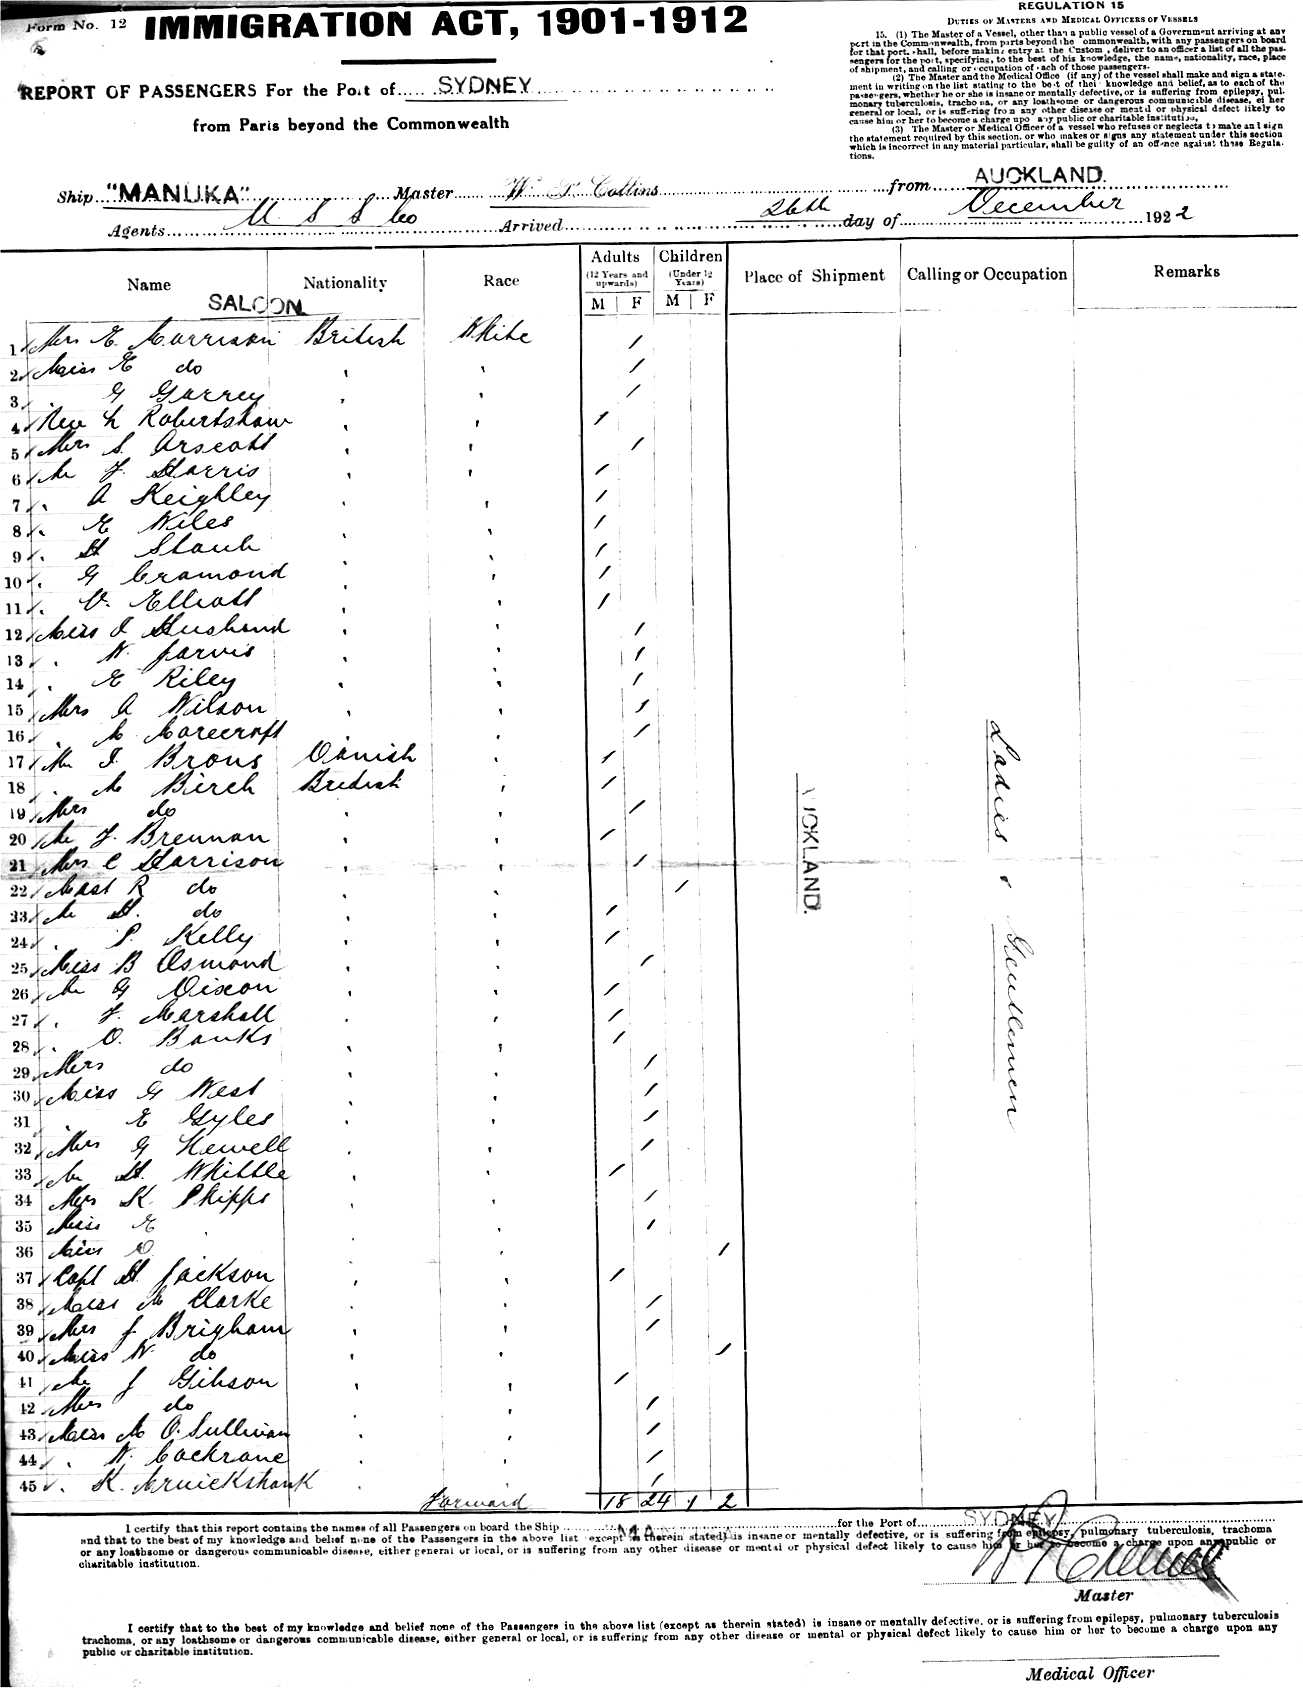 Form No. 12
IMMIGRATION ACT, 1901-1912
REPORT OF PASSENGERS For the Port of SYDNEY
from Parts beyond the Commonwealth
REGULATION 15
DUTIES OF MASTERS AND MEDICAL OFFICERS OF VESSELS
15. (1) The Master of a Vessel, other than a public vessel of a Government arriving at any
port in the Commonwealth, from parts beyond the ommonwealth, with any passengers on board
for that port, shall, before making entry at the Custom , deliver to an officer a list of all the pas-
sengers for the port, specifying, to the best of his knowledge, the name, nationality, race, place
of shipment, and calling or occupation of each of those passengers.
(2) The Master and the Medical Office (if any) of the vessel shall make and sign a state-
ment in writing on the list stating to the best of their knowledge and belief, as to each of the
passengers, whether he or she is insane or mentally defective, or is suffering from epilepsy, pul-
monary tuberculosis, trachoma, or any loathsome or dangerous communicible disease, either
general or local, or is suffering from any other disease or mental or physical defect likely to
cause him or her to become a charge upon any public or charitable institution.
(3) The Master or Medical Officer of a vessel who refuses or neglects to make and sign
the statement required by this section, or who makes or signs any statement under this section
which is incorrect in any material particular, shall be guilty of an offence against these Regula-
tions.
Ship "MANUKA" Master W. P. Collins from AUCKLAND.
Agents U S S Co Arrived 26th day of December 1922
Name Nationality Race Adults (12 Years and upwards) M F Children (Under 12 Years) M F Place of Shipment Calling or Occupation Remarks
SALOON
1 Mrs E. Morrison British White /
2 Miss E do " " /
3 " G Garrey " " /
4 Rev L Robertshaw " " /
5 Mrs S. Arscott " " /
6 Mr F. Harris " " /
7 " A Keighley " " /
8 " E Wiles " " /
9 " H Staub " " /
10 " G Cramond " " /
11 " V. Elliott " " /
12 Miss I Husband " " /
13 " W. Jarvis " " /
14 " E Riley " " /
15 Mrs A Wilson " " /
16 " M Morecroft " " /
17 Mr I. Brous Danish " /
18 " M Birch British " /
19 Mrs do " " /
20 Mr F. Brennan " " /
21 Mrs C Harrison " " /
22 Mast R do " " /
23 Mr H. do " " /
24 " P. Kelly " " /
25 Miss B Osmond " " /
26 Mr G Dixon " " /
27 " F. Marshall " " /
28 " O. Banks " " /
29 Mrs do " " /
30 Miss G West " " /
31 " E Gyles " " /
32 Mrs G Kewell " " /
33 Mr H. Whittle " " /
34 Mrs K. Phipps " " /
35 Miss E " " " /
36 Miss " " " /
37 Capt H. Jackson " " /
38 Miss M Clarke " " /
39 Mrs J Brigham " " /
40 Miss W. do " " /
41 Mr J Gibson " " /
42 Mrs do " " /
43 Miss M O'Sullivan " " /
44 " W. Cochrane " " /
45 " K. Cruickshank " " /
AUCKLAND.
Ladies & Gentlemen
Forward 18 24 1 2
I certify that this report contains the names of all Passengers on board the Ship MA for the Port of SYDNEY
and that to the best of my knowledge and belief none of the Passengers in the above list (except as therein stated) is insane or mentally defective, or is suffering from epilepsy, pulmonary tuberculosis, trachoma
or any loathsome or dangerous communicable disease, either general or local, or is suffering from any other disease or mental or physical defect likely to cause him or her to become a charge upon any public or
charitable institution.
Master
I certify that to the best of my knowledge and belief none of the Passengers in the above list (except as therein stated) is insane or mentally defective, or is suffering from epilepsy, pulmonary tuberculosis
trachoma, or any loathsome or dangerous communicable disease, either general or local, or is suffering from any other disease or mental or physical defect likely to cause him or her to become a charge upon any
public or charitable institution.
Medical Officer